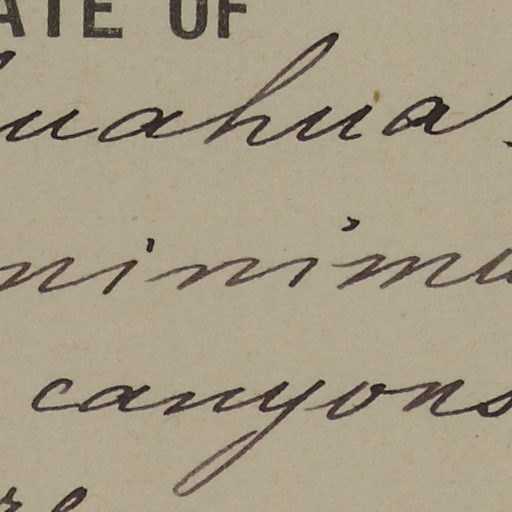 ATE OF
huahua.
minimu
canyons